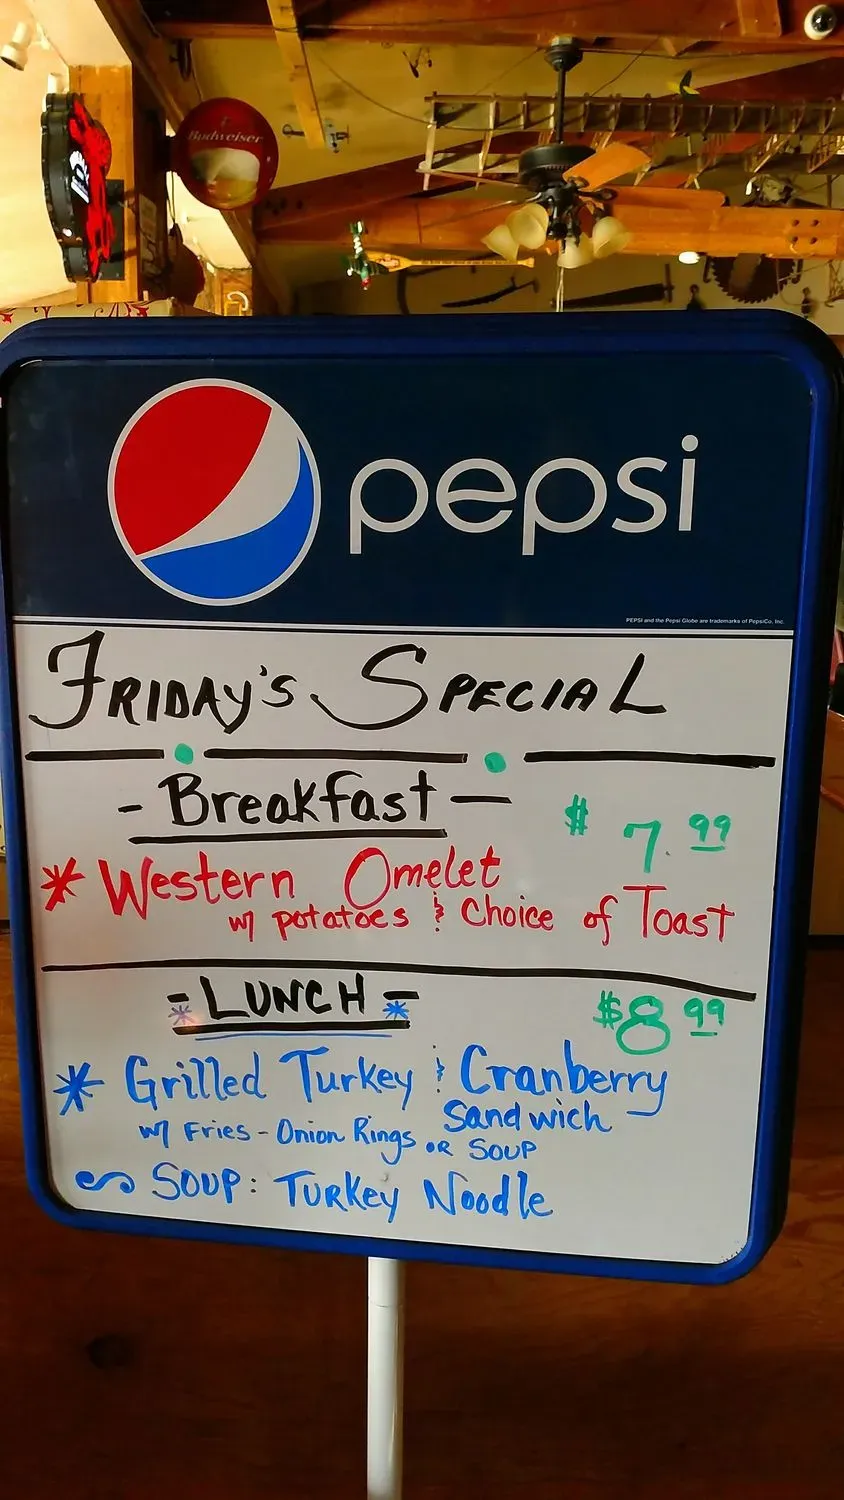 Budweiser
pepsi
PEPSI and the Pepsi Globe are trademarks of PepsiCo, Inc.
FRIDAY'S SPECIAL
- Breakfast —
$ 7.99
* Western Omelet
w/ potatoes & Choice of Toast
- LUNCH -
$8 99
* Grilled Turkey & Cranberry
Sandwich
w/ Fries - Onion Rings OR SOUP
SOUP: TURKEY Noodle